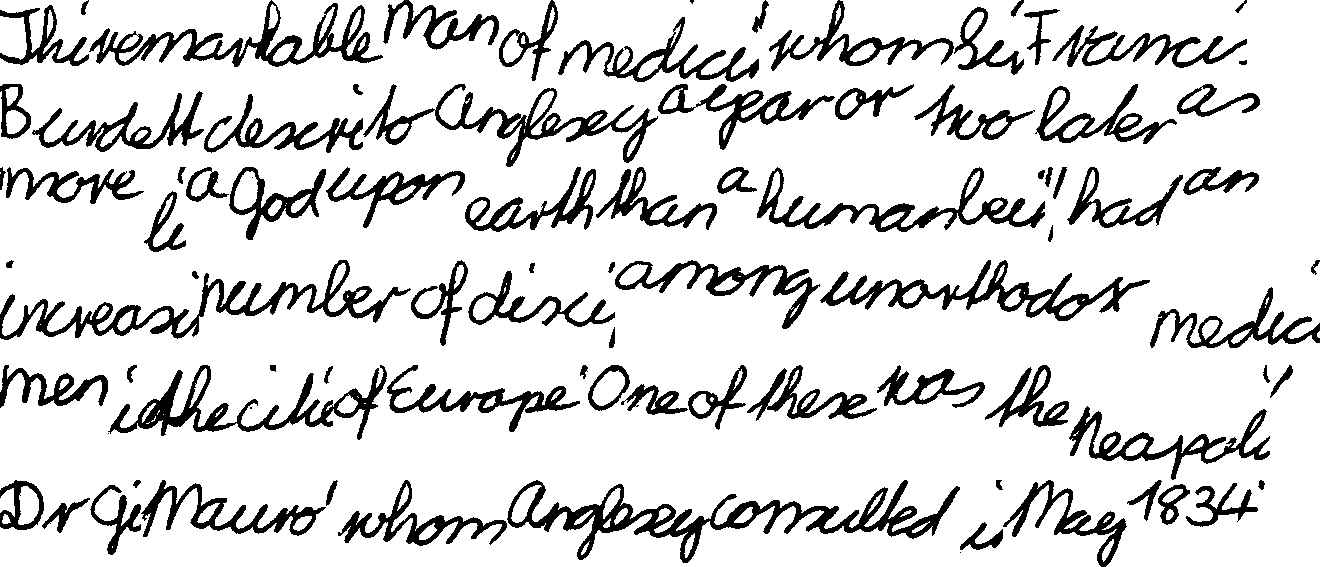 This remarkable man of medicine, whom Sir Francis
Burdett described to Anglesey a year or two later as
more like a God upon earth than a human being, had an
increasing number of disciples among unorthodox medical
men in the cities of Europe. One of these was the Neapolitan
Dr Giuseppe Mauro, whom Anglesey consulted in May 1834